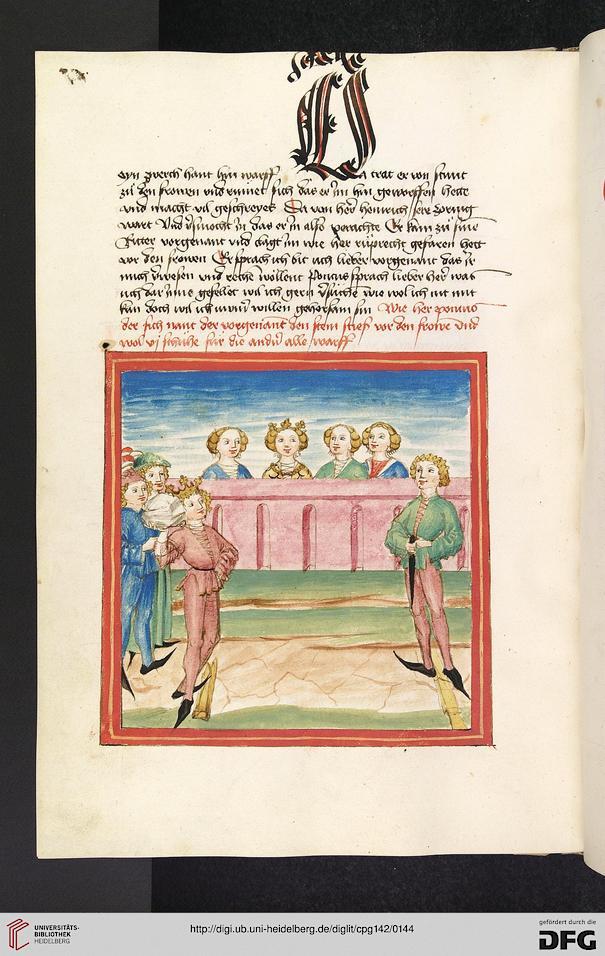 eyn zwerch hant hin warff
Da trat er von stunt
zu den frowen und rumet sich das er im hin geworffen hette
und macht vil geschreyes Da von her heinrich sere zornig
wart Und versmocht in das er in also verachte Er kam zu sime
Ritter vorgenant und clagt im wie her ruprecht gefaren hett
vor den frowen Er sprach ich bit uch lieber vorgenant das ir
mich und rechen wollent Poncus sprach lieber her was
uch dar inne gefellet wil ich gern versuchen wie wol ich nit mit
kan doch wil ich uwerm willen gehorsam sin Wie her poncus
der sich nant der vorgenant den stein stieß vor den frowen und
wol vj schuhe für die andern alle warff
UNIVERSITÄTS-
BIBLIOTHEK
HEIDELBERG
http://digi.ub.uni-heidelberg.de/diglit/cpg142/0144
gefördert durch die
DFG